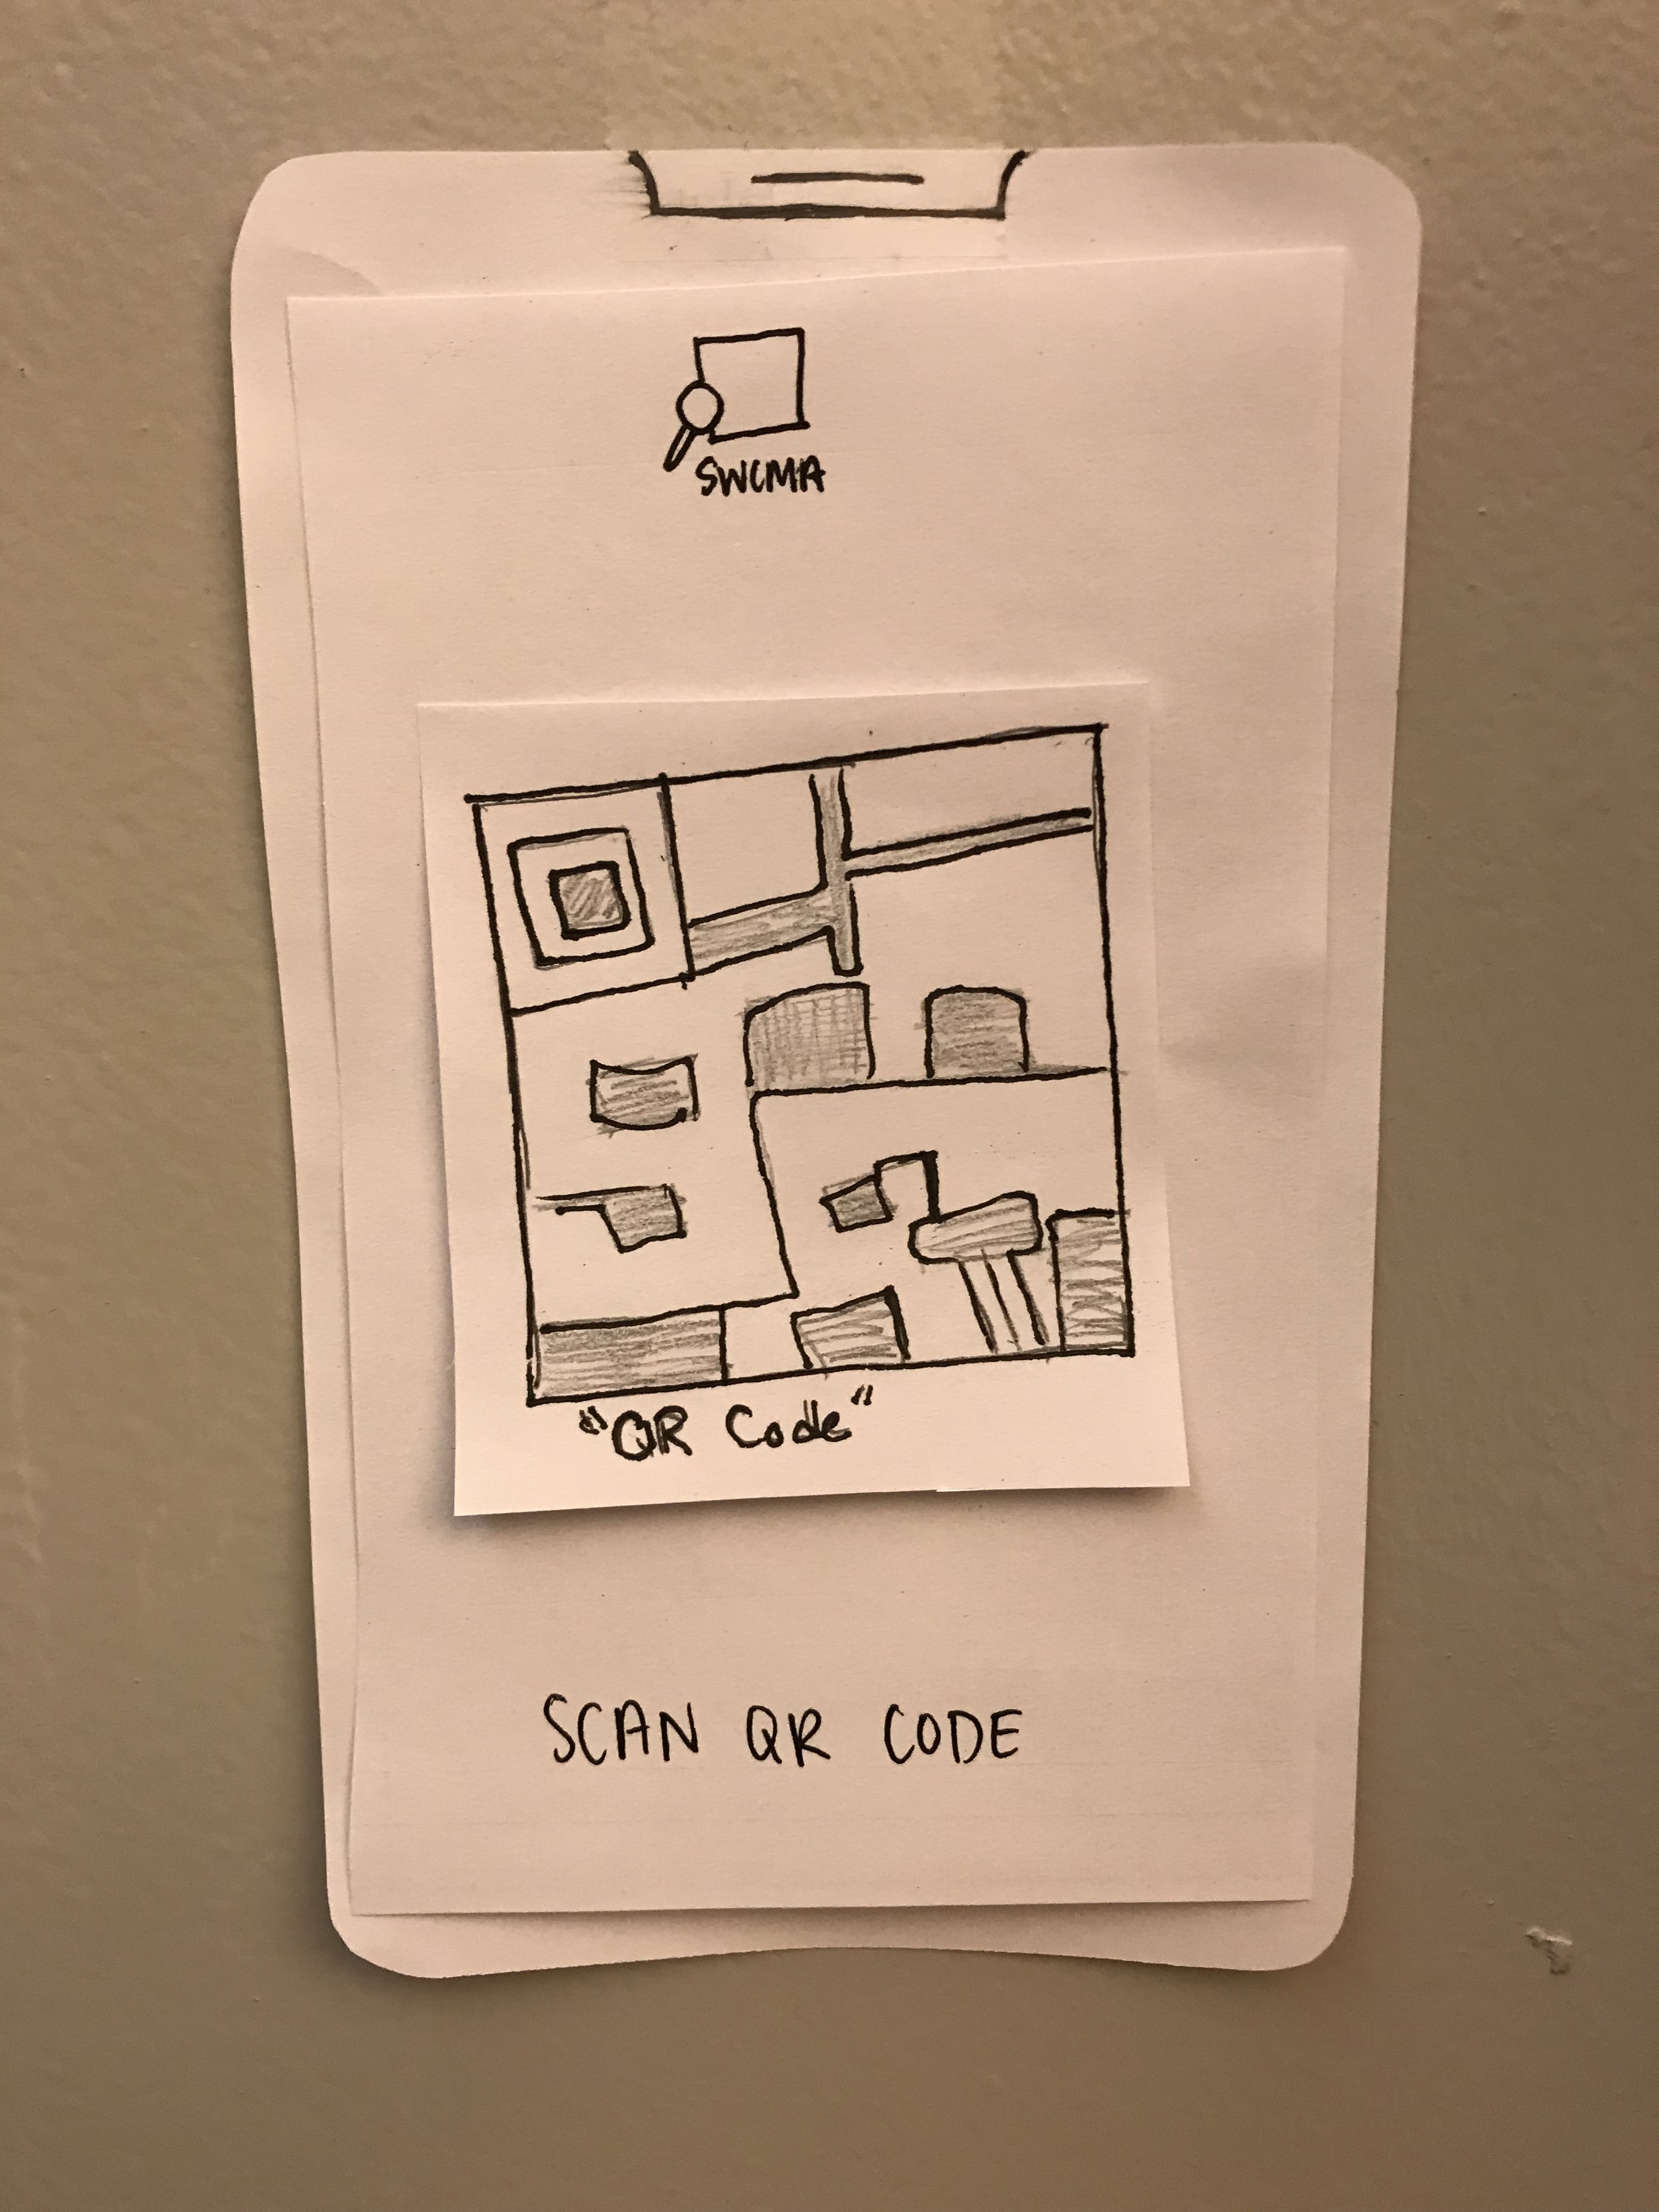 SWCMA
"QR Code"
SCAN QR CODE